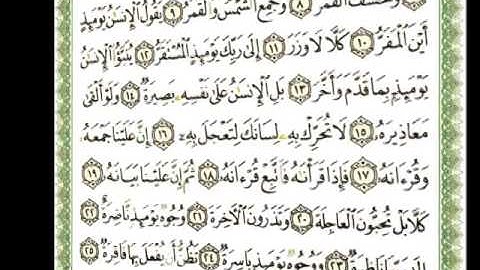 وَخَسَفَ ٱلْقَمَرُ ٨ وَجُمِعَ ٱلشَّمْسُ وَٱلْقَمَرُ ٩ يَقُولُ ٱلْإِنسَٰنُ يَوْمَئِذٍ
أَيْنَ ٱلْمَفَرُّ ١٠ كَلَّا لَا وَزَرَ ١١ إِلَىٰ رَبِّكَ يَوْمَئِذٍ ٱلْمُسْتَقَرُّ ١٢ يُنَبَّؤُا۟ ٱلْإِنسَٰنُ
يَوْمَئِذٍۭ بِمَا قَدَّمَ وَأَخَّرَ ١٣ بَلِ ٱلْإِنسَٰنُ عَلَىٰ نَفْسِهِۦ بَصِيرَةٌ ١٤ وَلَوْ أَلْقَىٰ
مَعَاذِيرَهُۥ ١٥ لَا تُحَرِّكْ بِهِۦ لِسَانَكَ لِتَعْجَلَ بِهِۦٓ ١٦ إِنَّ عَلَيْنَا جَمْعَهُۥ
وَقُرْءَانَهُۥ ١٧ فَإِذَا قَرَأْنَٰهُ فَٱتَّبِعْ قُرْءَانَهُۥ ١٨ ثُمَّ إِنَّ عَلَيْنَا بَيَانَهُۥ ١٩
كَلَّا بَلْ تُحِبُّونَ ٱلْعَاجِلَةَ ٢٠ وَتَذَرُونَ ٱلْءَاخِرَةَ ٢١ وُجُوهٌ يَوْمَئِذٍ نَّاضِرَةٌ ٢٢
إِلَىٰ رَبِّهَا نَاظِرَةٌ ٢٣ وَوُجُوهٌ يَوْمَئِذٍۭ بَاسِرَةٌ ٢٤ تَظُنُّ أَن يُفْعَلَ بِهَا فَاقِرَةٌ ٢٥